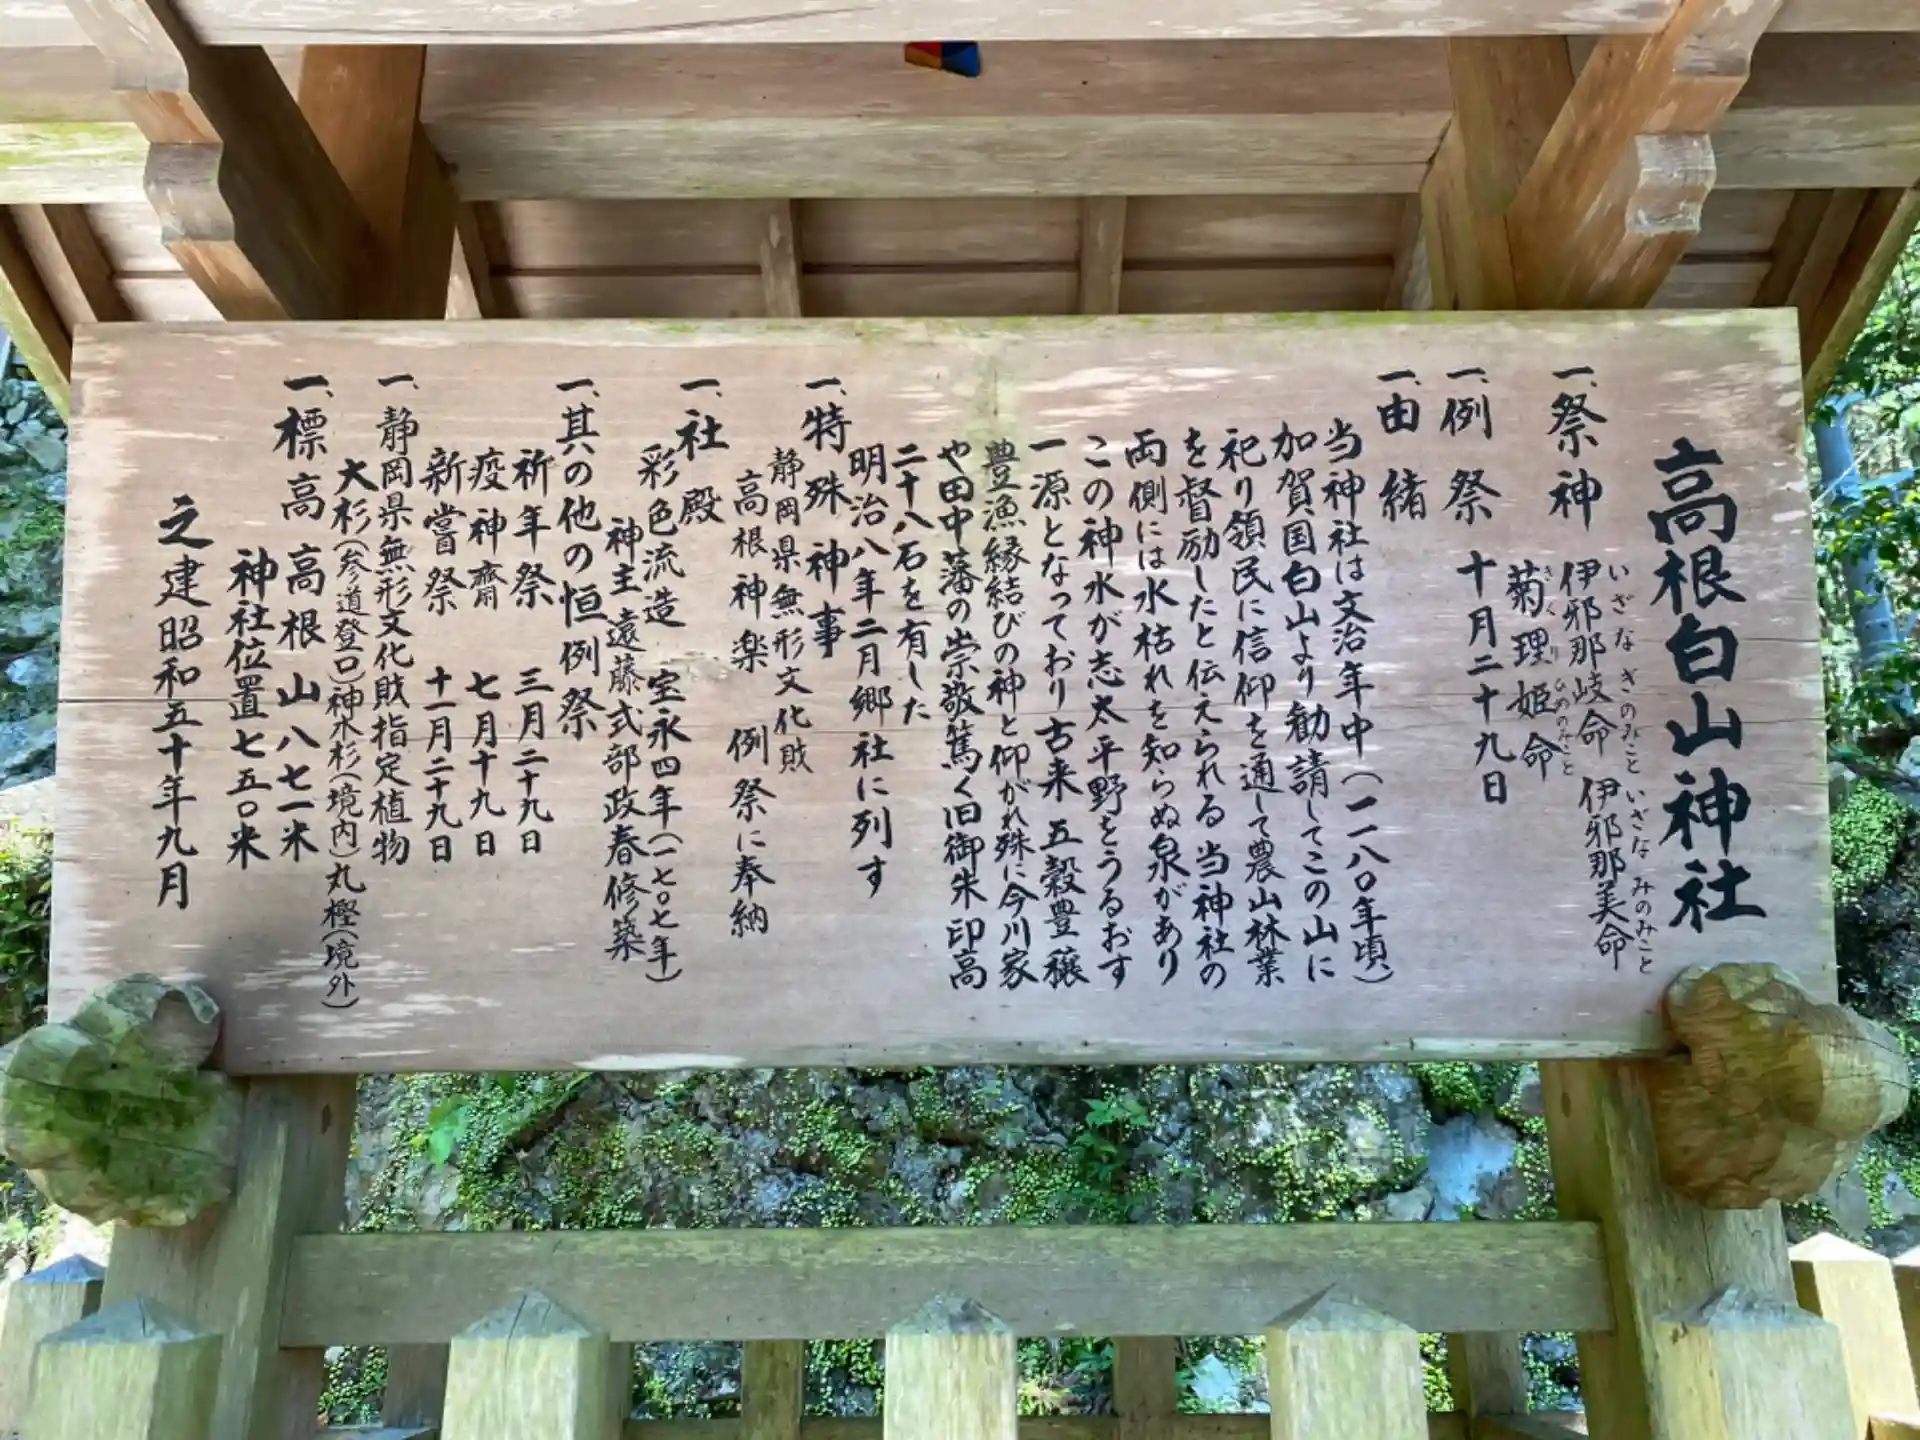 高根白山神社
一、祭神 伊邪那岐命 伊邪那美命
いざなぎのみこと いざなみのみこと
菊理姫命
きくりひめのみこと
一、例祭 十月二十九日
一、由緒
当神社は文治年中(一一八〇年頃)
加賀国白山より勧請してこの山に
祀り領民に信仰を通して農山林業
を督励したと伝えられる当神社の
両側には水枯れを知らぬ泉があり
この神水が志太平野をうるおす
一源となっており古来五穀豊穣
豊漁縁結びの神と仰がれ殊に今川家
や田中藩の崇敬篤く旧御朱印高
二十八石を有した
明治八年二月郷社に列す
一、特殊神事
静岡県無形文化財
高根神楽 例祭に奉納
一、社殿
彩色流造 宝永四年(一七〇七年)
神主遠藤式部政春修築
一、其の他の恒例祭
祈年祭 三月二十九日
疫神齋 七月十九日
新嘗祭 十一月二十九日
一、静岡県無形文化財指定植物
大杉(参道登口)神水杉(境内)丸樫(境外)
一、標高 高根山八七一米
神社位置七五〇米
之建昭和五十年九月